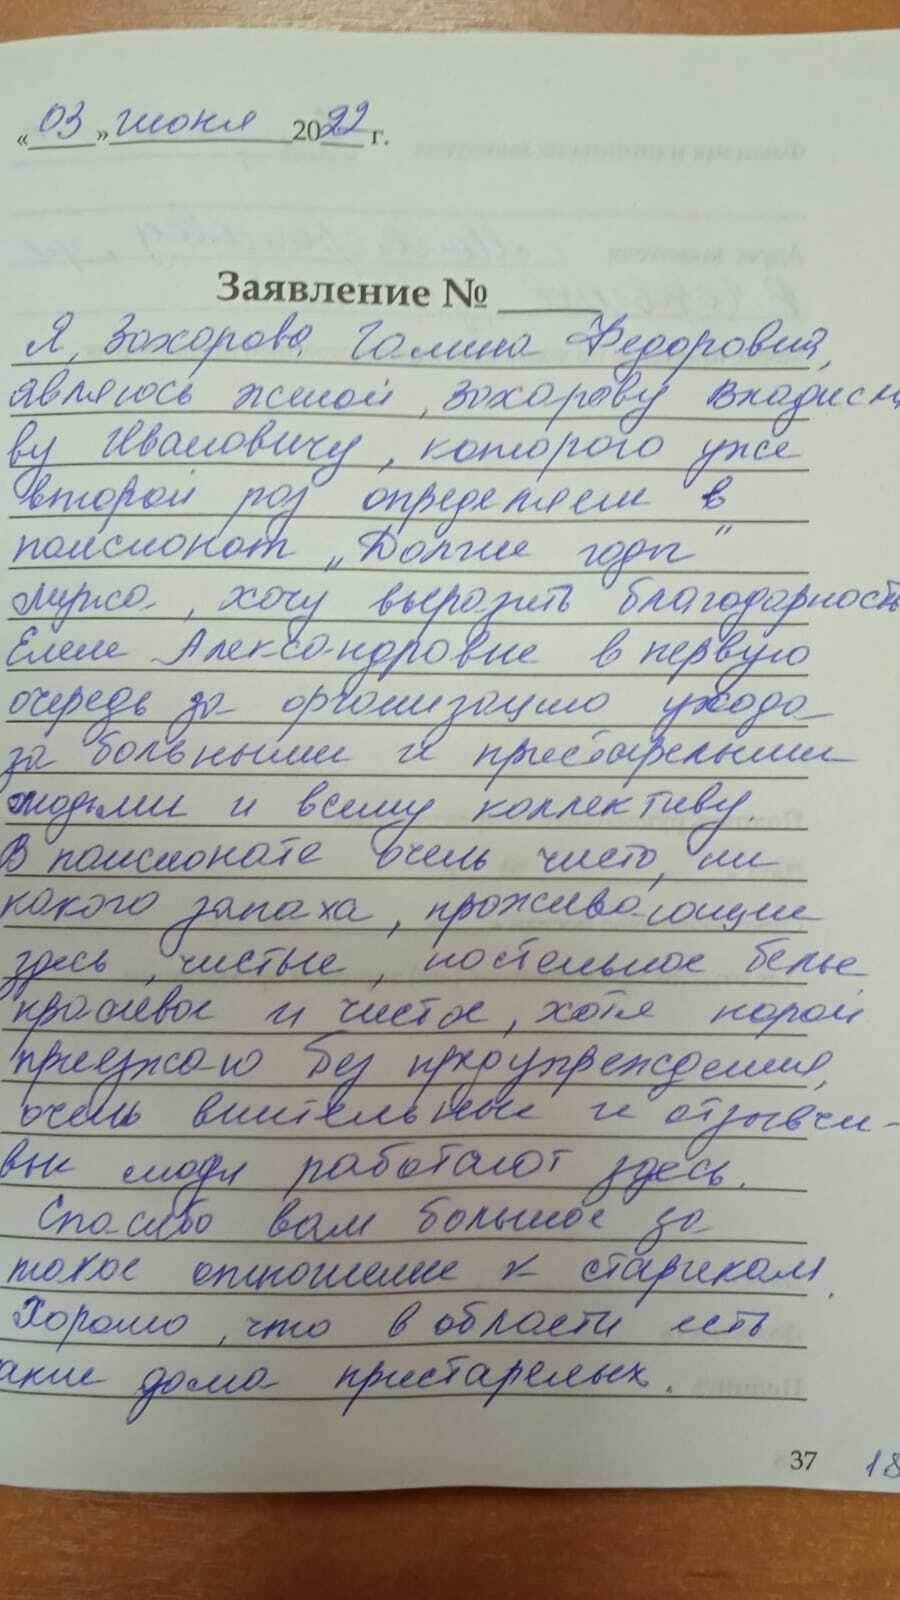 «03» июня 2022 г.
Заявление № ____
Я, Захарова Галина Федоровна,
являюсь женой, Захарову Владисла
ву Ивановичу, которого уже
второй раз определяем в
пансионат „Долгие годы"
мужа, хочу выразить благодарность
Елене Александровне в первую
очередь за организацию ухода
за больными и престарелыми
людьми и всему коллективу.
В пансионате очень чисто, ни
какого запаха, проживающие
здесь, чистые, постельное белье
красивое и чистое, хотя порой
приезжаю без предупреждения,
очень внительные и отзывчи-
вые люди работают здесь.
Спасибо вам большое за
такое отношение к старикам.
Хорошо, что в области есть
акие дома престарелых.
37 18